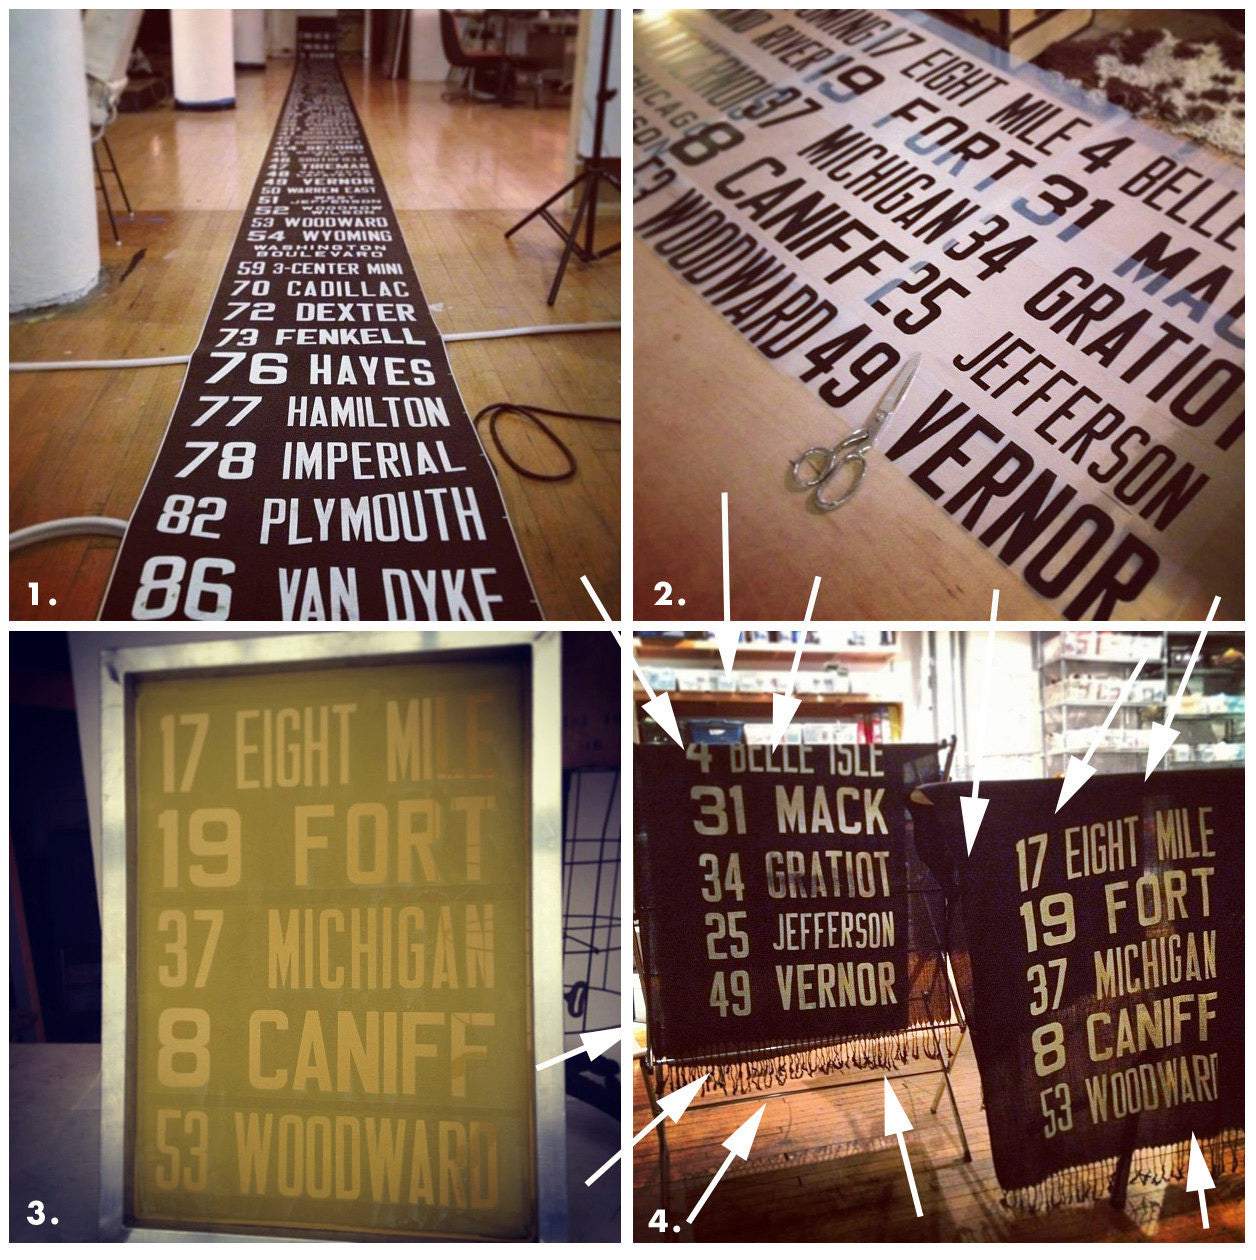 46 SOUTHFIELD
47 TIREMAN
48
49 VERNOR
50 WARREN EAST
51 WEST JEFFERSON
52 WOODROW WILSON
53 WOODWARD
54 WYOMING
WASHINGTON
BOULEVARD
59 3-CENTER MINI
70 CADILLAC
72 DEXTER
73 FENKELL
76 HAYES
77 HAMILTON
78 IMPERIAL
82 PLYMOUTH
86 VAN DYKE
1.
17 EIGHT MILE 4 BELLE
RIVER 19 FORT 31 MAC
37 MICHIGAN 34 GRATIOT
8 CANIFF 25 JEFFERSON
53 WOODWARD 49 VERNOR
2.
17 EIGHT MILE
19 FORT
37 MICHIGAN
8 CANIFF
53 WOODWARD
3.
4 BELLE ISLE
31 MACK
34 GRATIOT
25 JEFFERSON
49 VERNOR
17 EIGHT MILE
19 FORT
37 MICHIGAN
8 CANIFF
53 WOODWARD
4.